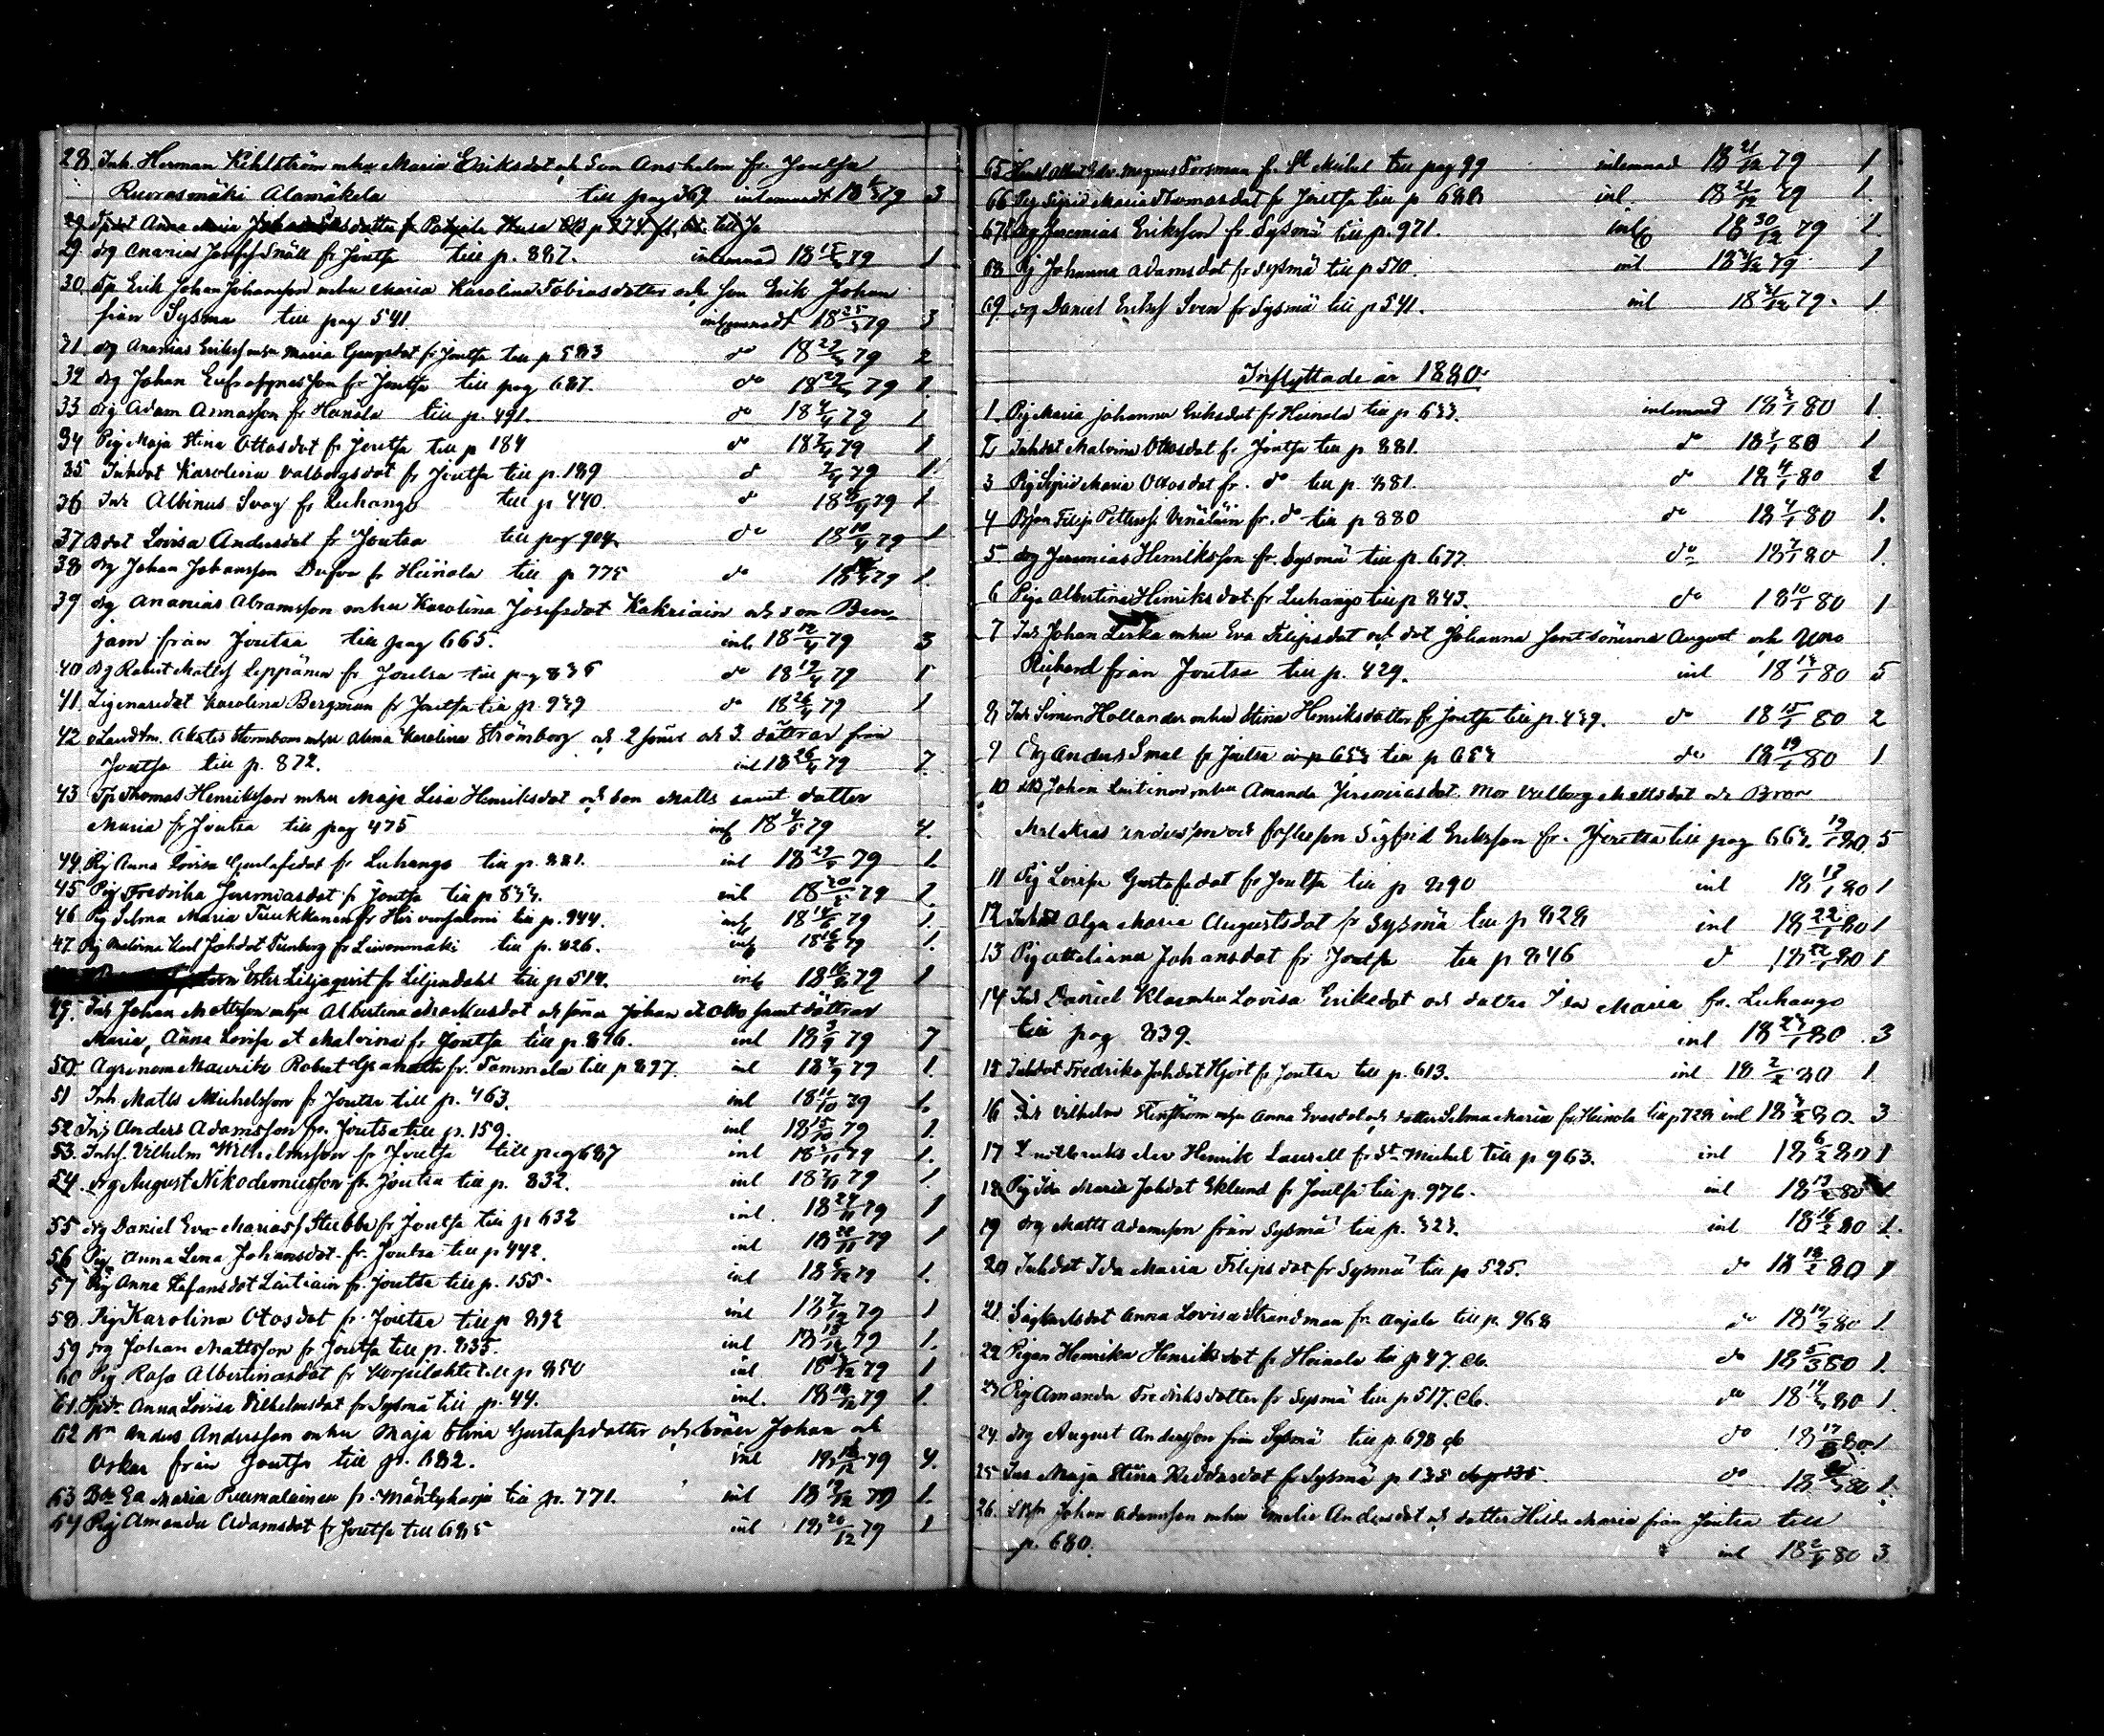 28. Inh. Herman Kihlström mhu Maria Eriksdot och Son Anshelm fr. Joutsa
Ruorasmäki Alamäkela till pag 369 inlemnadt 79 3
Anna Maria
29. drg Ananias Josefss Snäll fr Joutsa till p. 887. inlemnad 18 79 1
30. Tp Erik Johan Johansson mhu Maria Karolina Tobiasdotter och Son Erik Johan
från Sysmä till pag 541. 18 25/3 79 3
31 drg Ananias Erikss mhu Maria fr Joutsa till p 583 do 18 79 2
32 drg Johan fr Joutsa till pag 687. do 18 79 1.
33 drg Adam Asmasson fr Heinola till p. 491. do 18 79 1
34 Pig Maja Stina Ottosdot fr Joutsa till p 184 do 18 79 1
35 Inhdot Karolina Valborgsdot fr Joutsa till p. 189 79 1.
36 Inh Albinus Svag fr Luhango till p 440. do 18 79 1
37 Bdot Lovisa Andersdot fr Joutsa till pag 904 do 18 10/4 79 1
38 drg Johan Johansson fr Heinola till p 775 do 18 79 1
39 drg Ananias Abramsson mhu Karolina Josefsdot Kakriain och son Ben-
jam från Joutsa till pag 665. inl. 18 12/4 79 3
40 drg Robert Matts Leppänen fr Joutsa till pag 835 do 18 19/4 79 1
41. Karolina Bergman fr Joutsa till p. 939 do 18 26/4 79 1
42 Landtm. mhu Alma Karolina Strömborg och 2 söner och 3 döttrar från
Joutsa till p. 872. inl 18 26/4 79 7.
43 Tp Thomas Henriksson mhu Maja Lisa Henriksdot och son Matts samt dotter
Maria fr Joutsa till pag 475 inl 79 4.
44. Pig Anna Lovisa Gustafsdot fr Luhango till p. 881. inl 18 79 1.
45 Pig Fredrika Jeremiasdot fr Joutsa till p inl 18 79 1
46 Pig Selma Maria Tuukkanen fr Hirvensalmi till p. 944. inl 18 79 1.
47. Pig Malvina Karl Johdot fr Leivonmäki till p. 826. inl 18 79 1.
Ester Liljeqvist fr Liljendahl till p 514. inl 18 79 1
49. Inh Johan Mattsson mhu Albertina Markusdot och söner Johan & Otto samt döttrar
Maria, Anna Lovisa & Malvina fr Joutsa till p. 896. inl 18 3/9 79 7
50. Agronom Maurits Robert Granath fr. Tammela till p 897. inl 18 79 1.
51 Inh Matts Michelsson fr Joutsa till p. 463. inl 18 11/10 79 1.
52 Inh Anders Adamsson fr. Joutsa till p. 159. inl 18 79 1.
53. Inh. Vilhelm Wilhelmsson fr Joutsa till pag 687 inl 18 79 1.
54. drg August Nikodemusson fr. Joutsa till p. 832. inl 18 79 1.
55 drg Daniel Eva-Mariass Stubbe fr Joutsa till p 632 inl. 18 79 1
56 Pig. Anna Lena Johansdot fr. Joutsa till p 442. inl 18 79 1
57 Pig Anna Stefansdot Laitiain fr. Joutsa till p. 155. inl 18 79 1.
58. Pig Karolina Ottosdot fr. Joutsa till p 892 inl 18 7/12 79 1
59 drg Johan Mattsson fr Joutsa till p. 835. inl 18 79 1.
60 Pig. Rosa Albertinasdot fr Korpilahti till p 850 inl 18 79 1
61. Anna Lovisa Vilhelmsdot fr Sysmä till p. 44. inl. 18 79 1.
62 Anders Andersson mhu Maja Stina Gustafsdotter och söner Johan och
Oskar från Joutsa till p. 882. inl 18 79 4.
63 Ea Maria Puumalainen fr. Mäntyharju till p. 771. inl 18 79 1.
64 Pig Amanda Adamsdot fr Joutsa till 685 inl 18 20/12 79 1
65 Magnus Forsman fr. St Michel till pag 99 inlemnad 18 21/12 79 1
66 Pig Sigrid Maria Thomasdot fr Joutsa till p 688 inl. 18 21/12 79 1.
67 drg Jeremias Eriksson fr. Sysmä till p. 971. inl 18 30/12 79 1.
68 Pig Johanna Adamsdot fr Sysmä till p 570. inl 18 79 1
69. drg Daniel Erikss Sven fr Sysmä till p 541. inl 18 79. 1.
Inflyttade år 1880.
1. Pig Maria Johanna Eriksdot fr Heinola till p 633. inlemnad 18 80 1.
2 Inhdot Malvina Ottosdot fr. Joutsa till p. 881. do 18 80 1
3 Pig Sigrid Maria Ottosdot fr. do till p. 881. do 18 4/1 80 1
4 Filip Petterss. Venäläin fr. do till p 880 do 18 4/1 80 1.
5 drg Jeremias Henriksson fr. Sysmä till p. 677. do 18 7/1 80 1.
6 Piga Albertina Henriksdot fr Luhango till p 843. do 18 10/1 80 1
7 Inh Johan Lerka mhu Eva Filipsdot och dot Johanna samt sönerna August och Uno
Richard från Joutsa till p. 429. inl 18 80 5
8 Inh Simon Hollander mhu Stina Henriksdotter fr Joutsa till p. 439. do 18 15/1 80 2
9 Drg Anders Smal fr Joutsa till p 653 do 18 19/1 80 1
10 Johan Laitinen mhu Amanda Jeremiasdot. Mor Valborg Mattsdot och Bror
Andersson och fosterson Sigfrid Eriksson fr. Joutsa till pag 663. 80. 5
11 Pig Lovisa Gustafsdot fr Joutsa till p 890 inl 18 80 1
12 Inhdot Olga Maria Augustsdot fr Sysmä till p 828 inl 18 22/1 80 1
13 Pig Ottiliana Johansdot fr Joutsa till p 846 do 18 22/1 80 1
14 Inh Daniel Klas mhu Lovisa Eriksdot och dotter Ida Maria fr. Luhango
till pag 839. inl 18 80 3
15 Inhdot Fredrika Johdot Hjort fr Joutsa till p. 613. inl 18 2/2 80 1
16 Inh Vilhelm Stenström mhu Anna Evasdot och dotter Selma Maria fr. Heinola till p 728 inl 18 80. 3
17 elev Henrik Laurell fr St. Michel till p 963. inl 18 6/2 80 1
18 Pig Ida Maria Johdot Eklund fr Joutsa till p. 976. inl 18 80
19 drg Matts Adamsson från Sysmä till p. 323. inl 18 16/2 80 1.
20 Inhdot Ida Maria Filipsdot fr Sysmä till p 525. do 18 18/2 80 1
21. Anna Lovisa Strandman fr. Anjala till p. 968 do 18 80 1.
22 Pigan Henrika Henriksdot fr Heinola till p 47. do 18 5/3 80 1.
23 Pig Amanda Fredriksdotter fr Sysmä till p 517. do 18 80 1.
24. drg August Andersson från Sysmä till p. 698 do 18 80 1
25 Inh Maja Stina fr Sysmä p 135 do 18 80 1.
26. Johan Adamsson mhu Emelie Andersdot och dotter Hilda Maria från Joutsa till
p. 680. inl 18 2/4 80 3